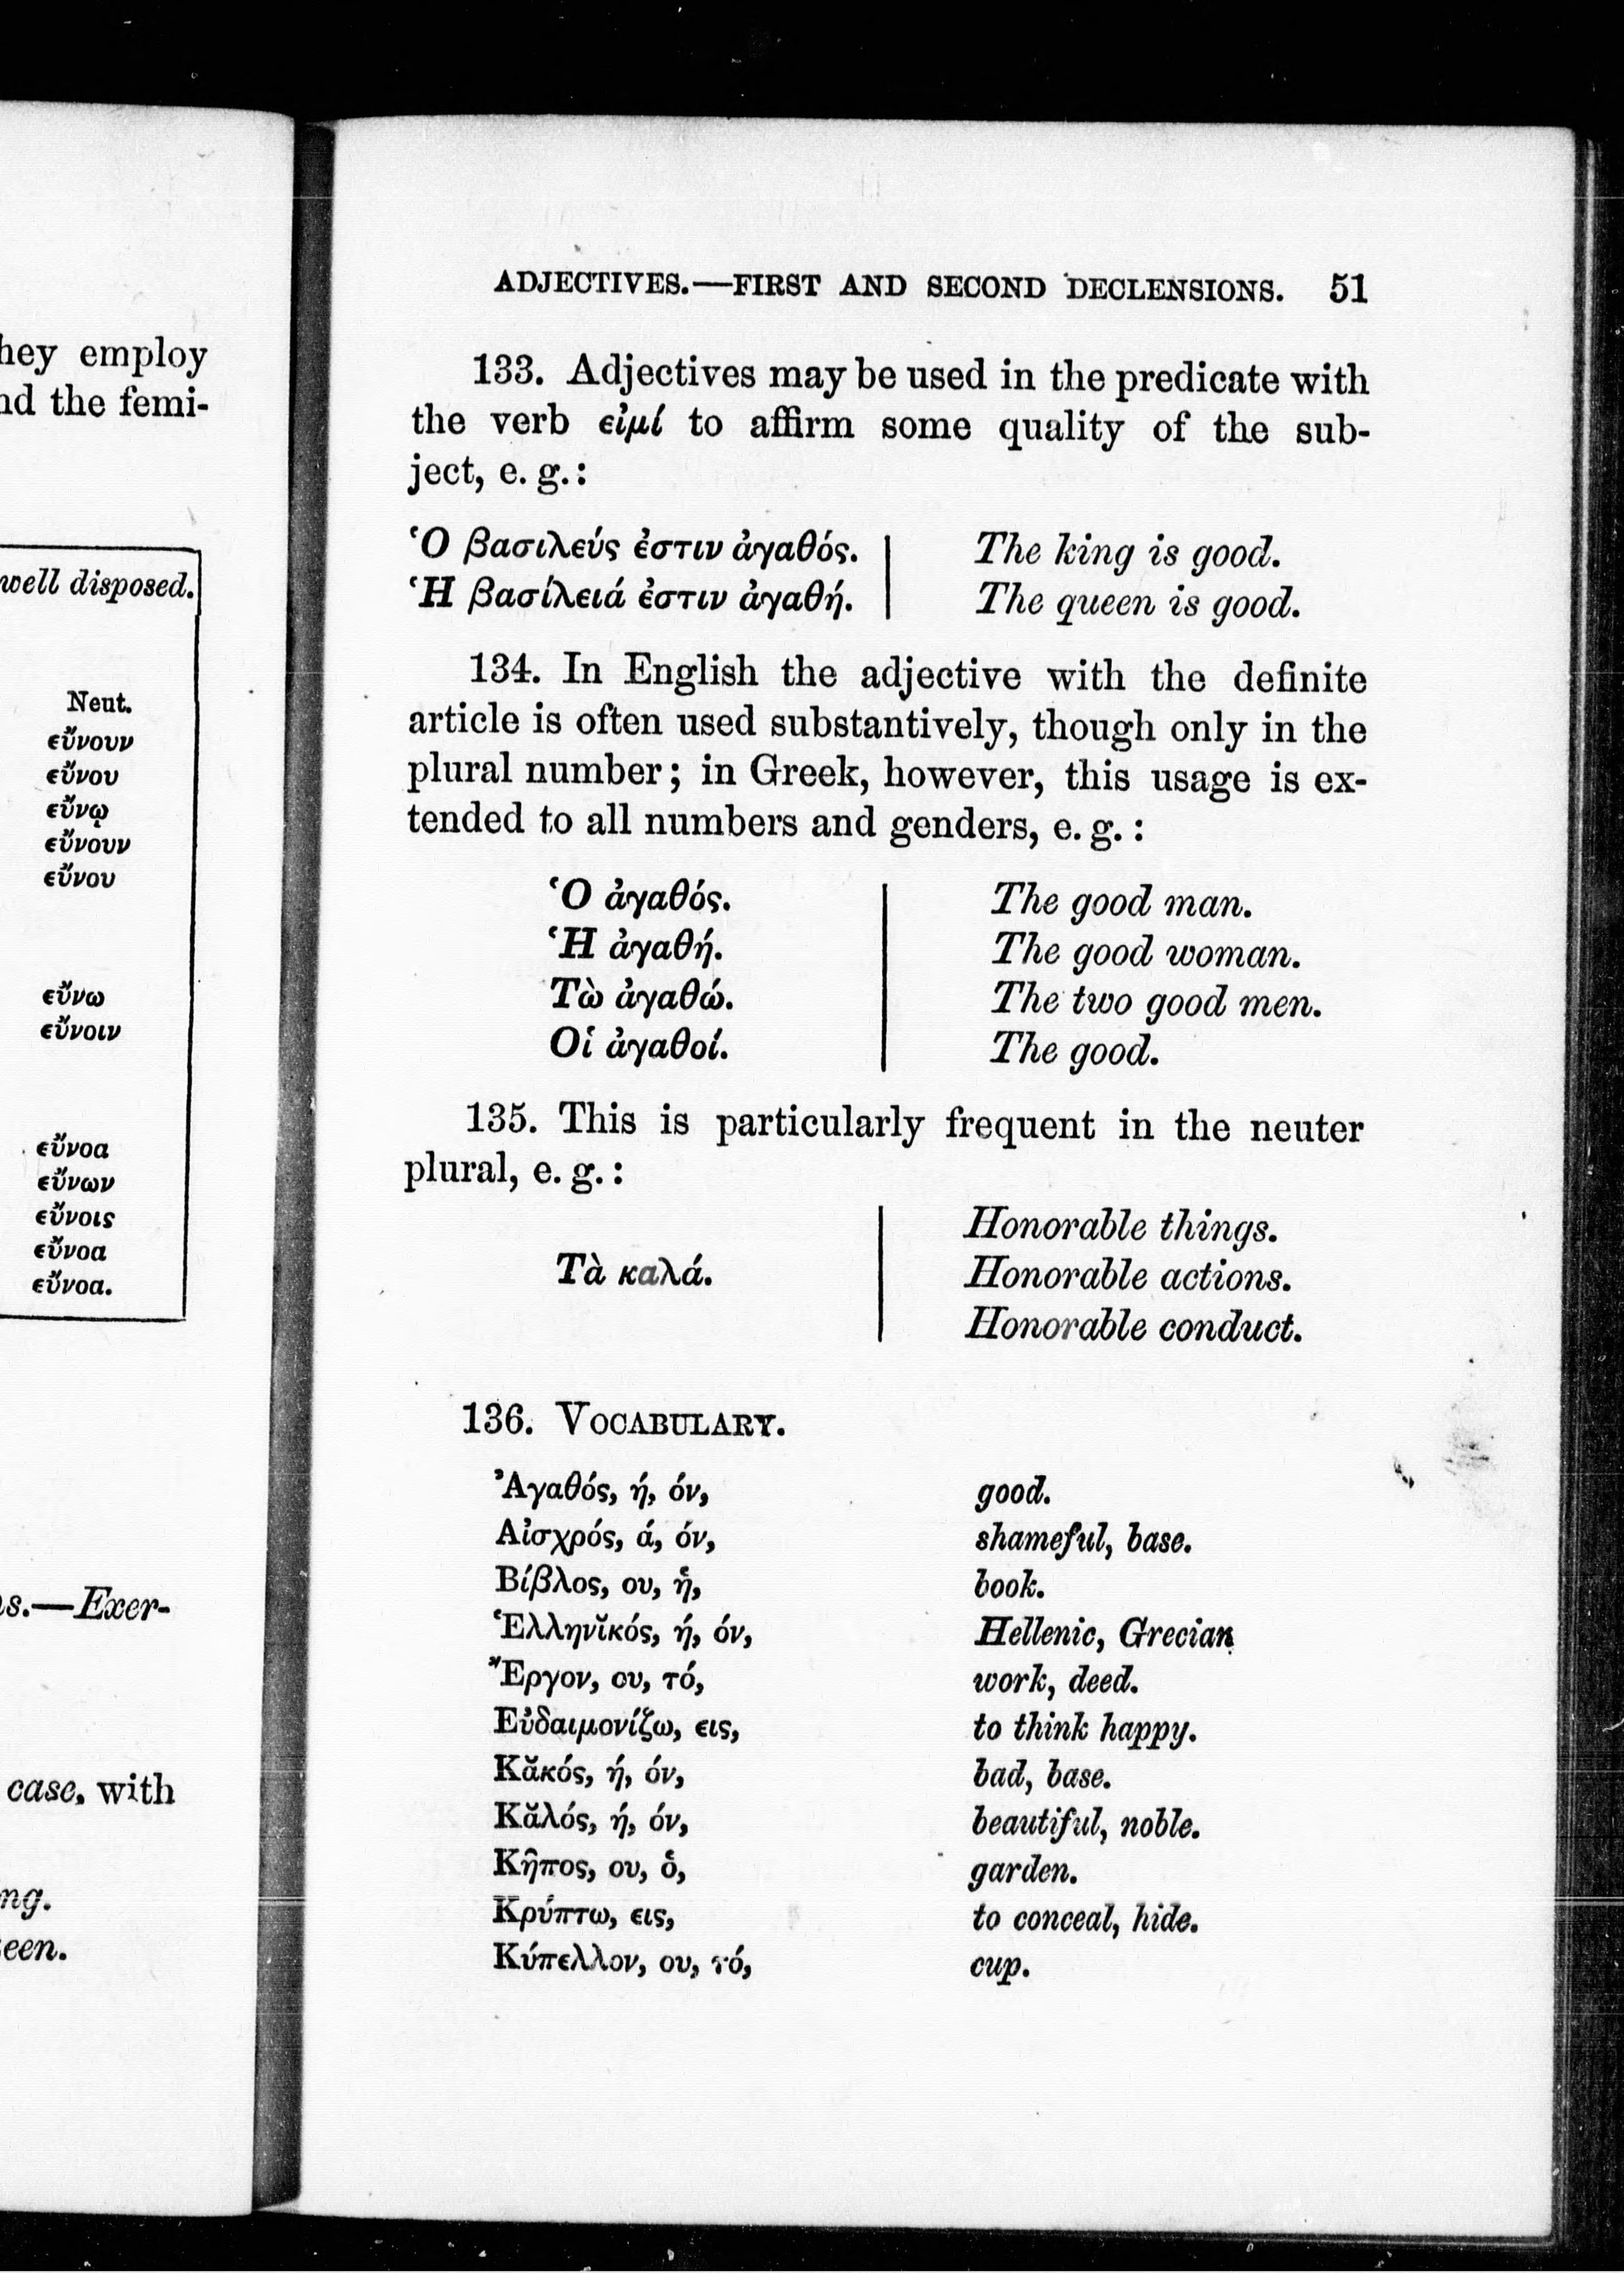 hey employ
nd the femi-
well disposed.
Neut.
εὔνουν
εὔνου
εὔνῳ
εὔνουν
εὔνου
εὔνω
εὔνοιν
εὔνοα
εὔνων
εὔνοις
εὔνοα
εὔνοα.
s.—Exer-
case, with
ng.
een.
ADJECTIVES.—FIRST AND SECOND DECLENSIONS. 51
133. Adjectives may be used in the predicate with
the verb εἰμί to affirm some quality of the sub-
ject, e. g.:
Ὁ βασιλεύς ἐστιν ἀγαθός. The king is good.
Ἡ βασίλειά ἐστιν ἀγαθή. The queen is good.
134. In English the adjective with the definite
article is often used substantively, though only in the
plural number; in Greek, however, this usage is ex-
tended to all numbers and genders, e. g.:
Ὁ ἀγαθός. The good man.
Ἡ ἀγαθή. The good woman.
Τὼ ἀγαθώ. The two good men.
Οἱ ἀγαθοί. The good.
135. This is particularly frequent in the neuter
plural, e. g.:
Honorable things.
Τὰ καλά. Honorable actions.
Honorable conduct.
136. VOCABULARY.
Ἀγαθός, ή, όν, good.
Αἰσχρός, ά, όν, shameful, base.
Βίβλος, ου, ἡ, book.
Ἑλληνῐκός, ή, όν, Hellenic, Grecian
Ἔργον, ου, τό, work, deed.
Εὐδαιμονίζω, εις, to think happy.
Κᾰκός, ή, όν, bad, base.
Κᾰλός, ή, όν, beautiful, noble.
Κῆπος, ου, ὁ, garden.
Κρύπτω, εις, to conceal, hide.
Κύπελλον, ου, τό, cup.